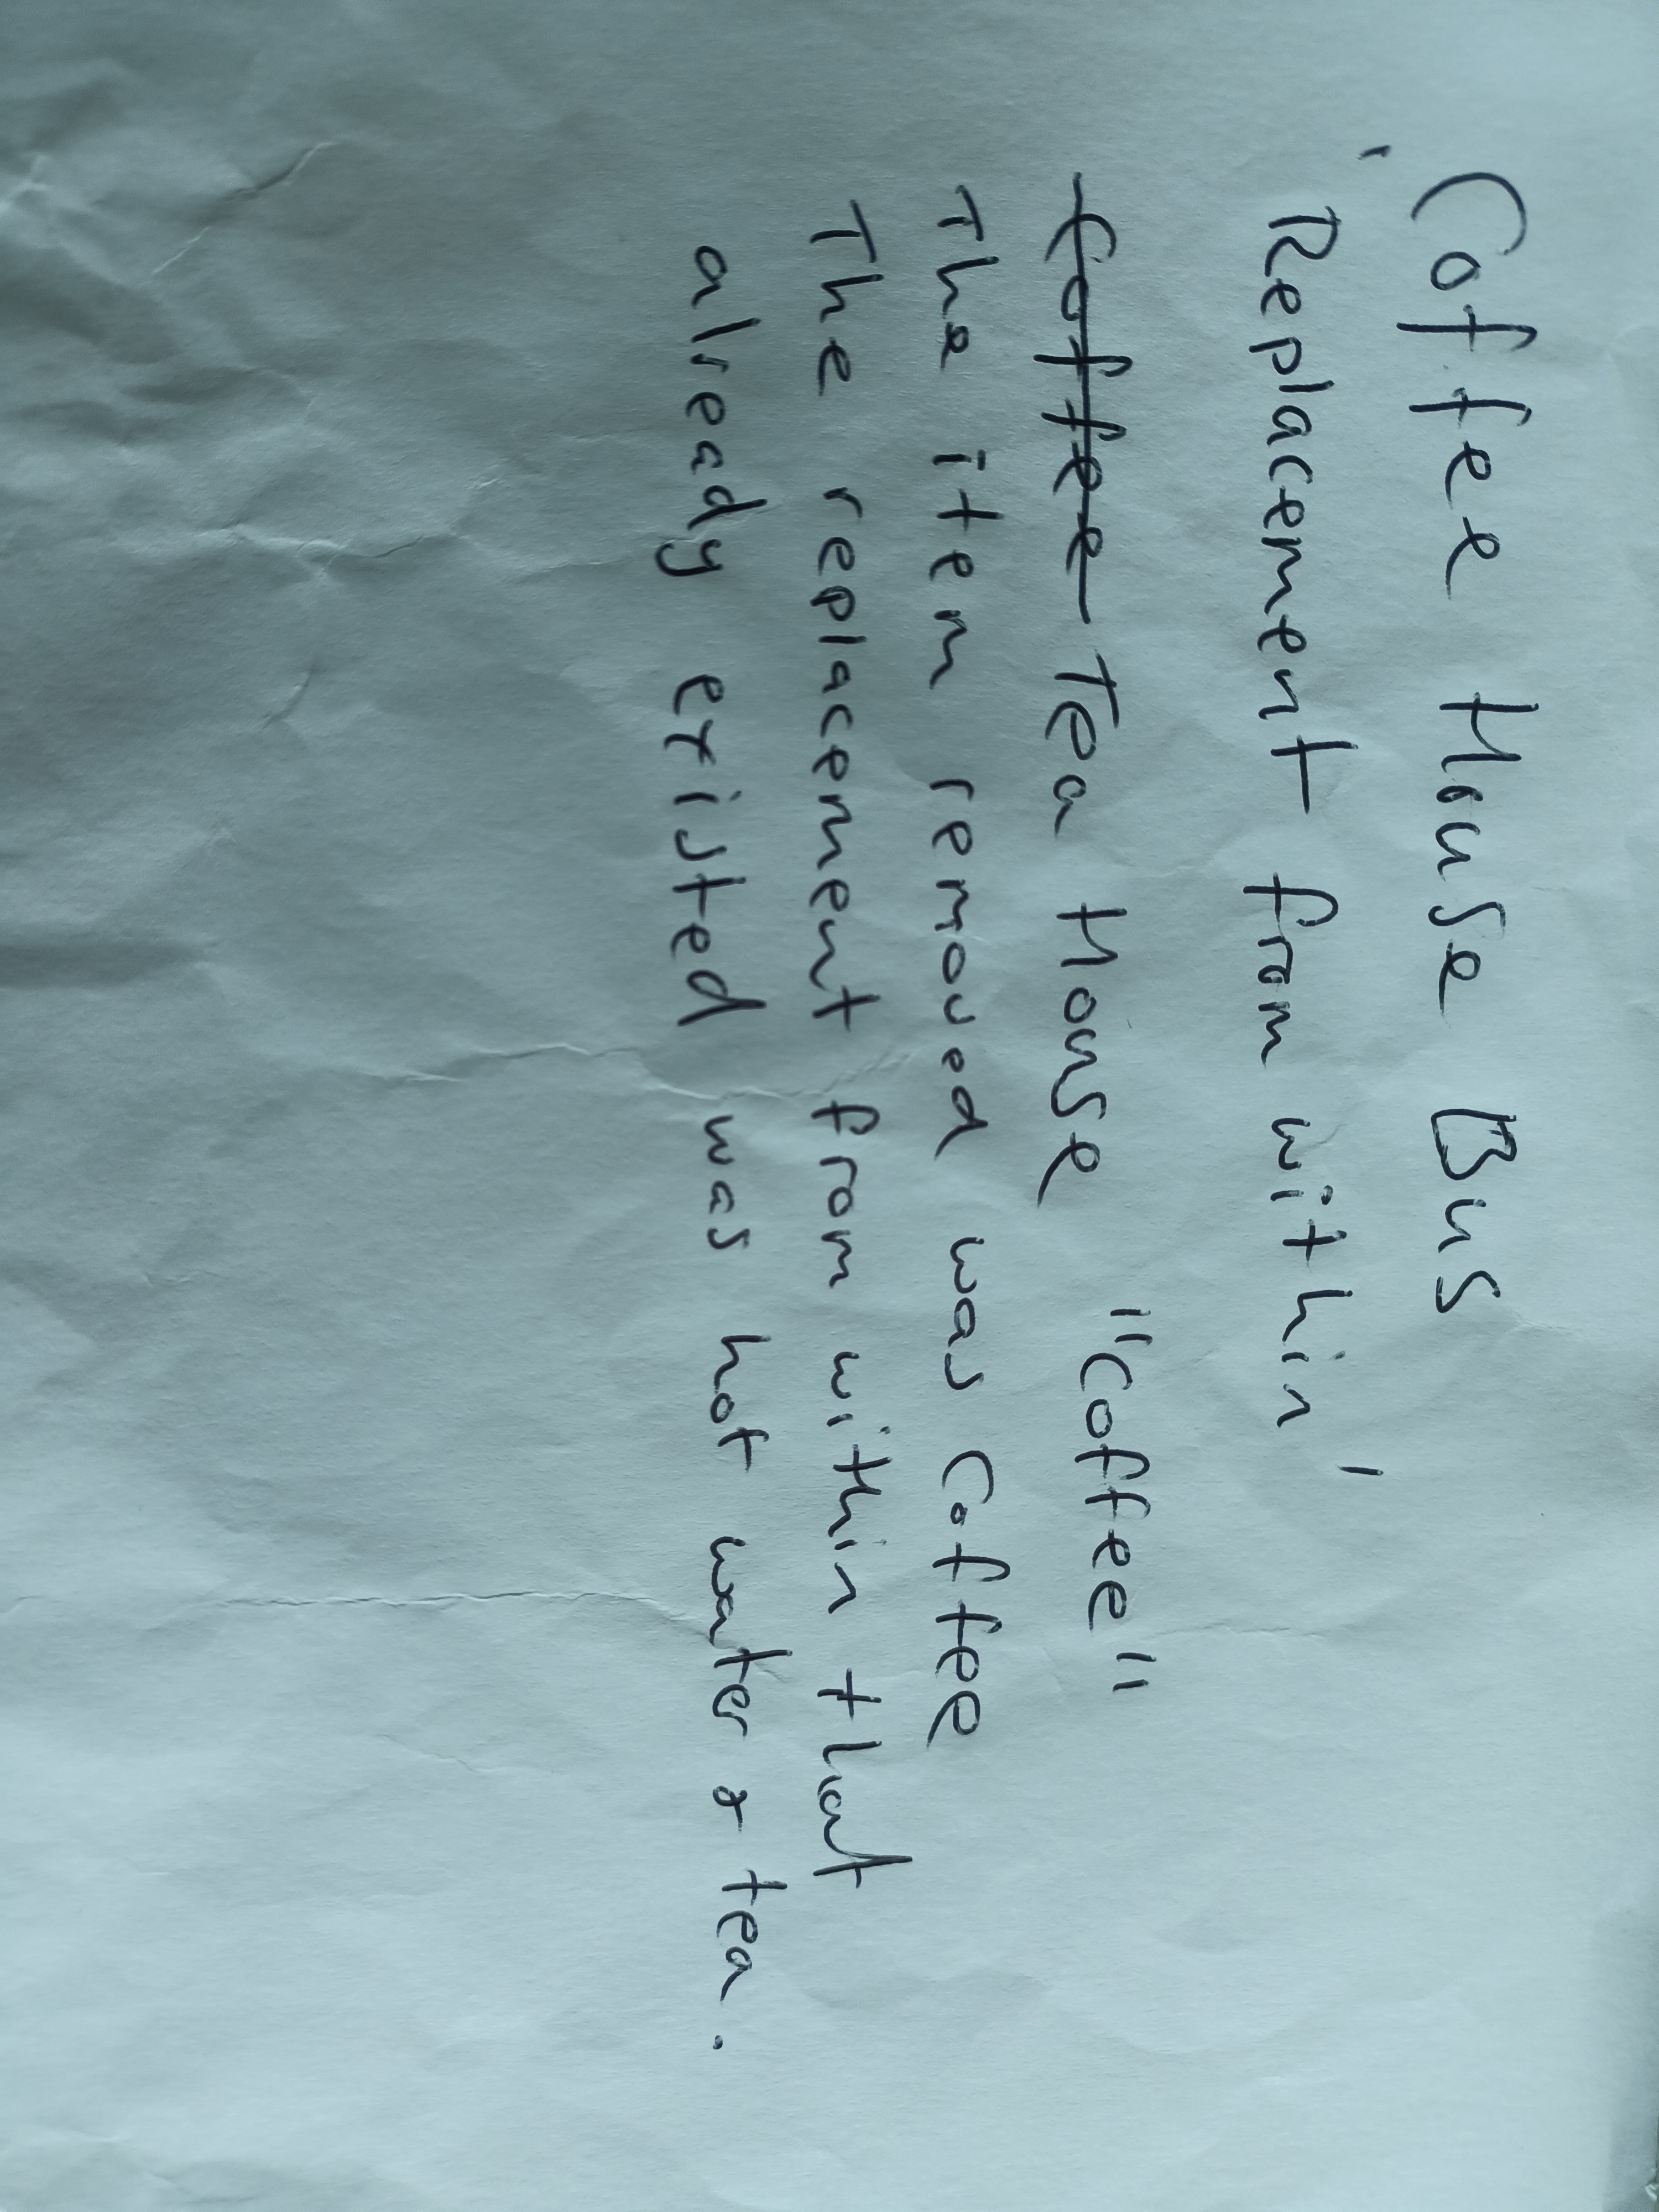 Coffee House Bus
'Replacement from within'
Coffee Tea House "Coffee"
The item removed was Coffee
The replacement from within that
already existed was hot water & tea.